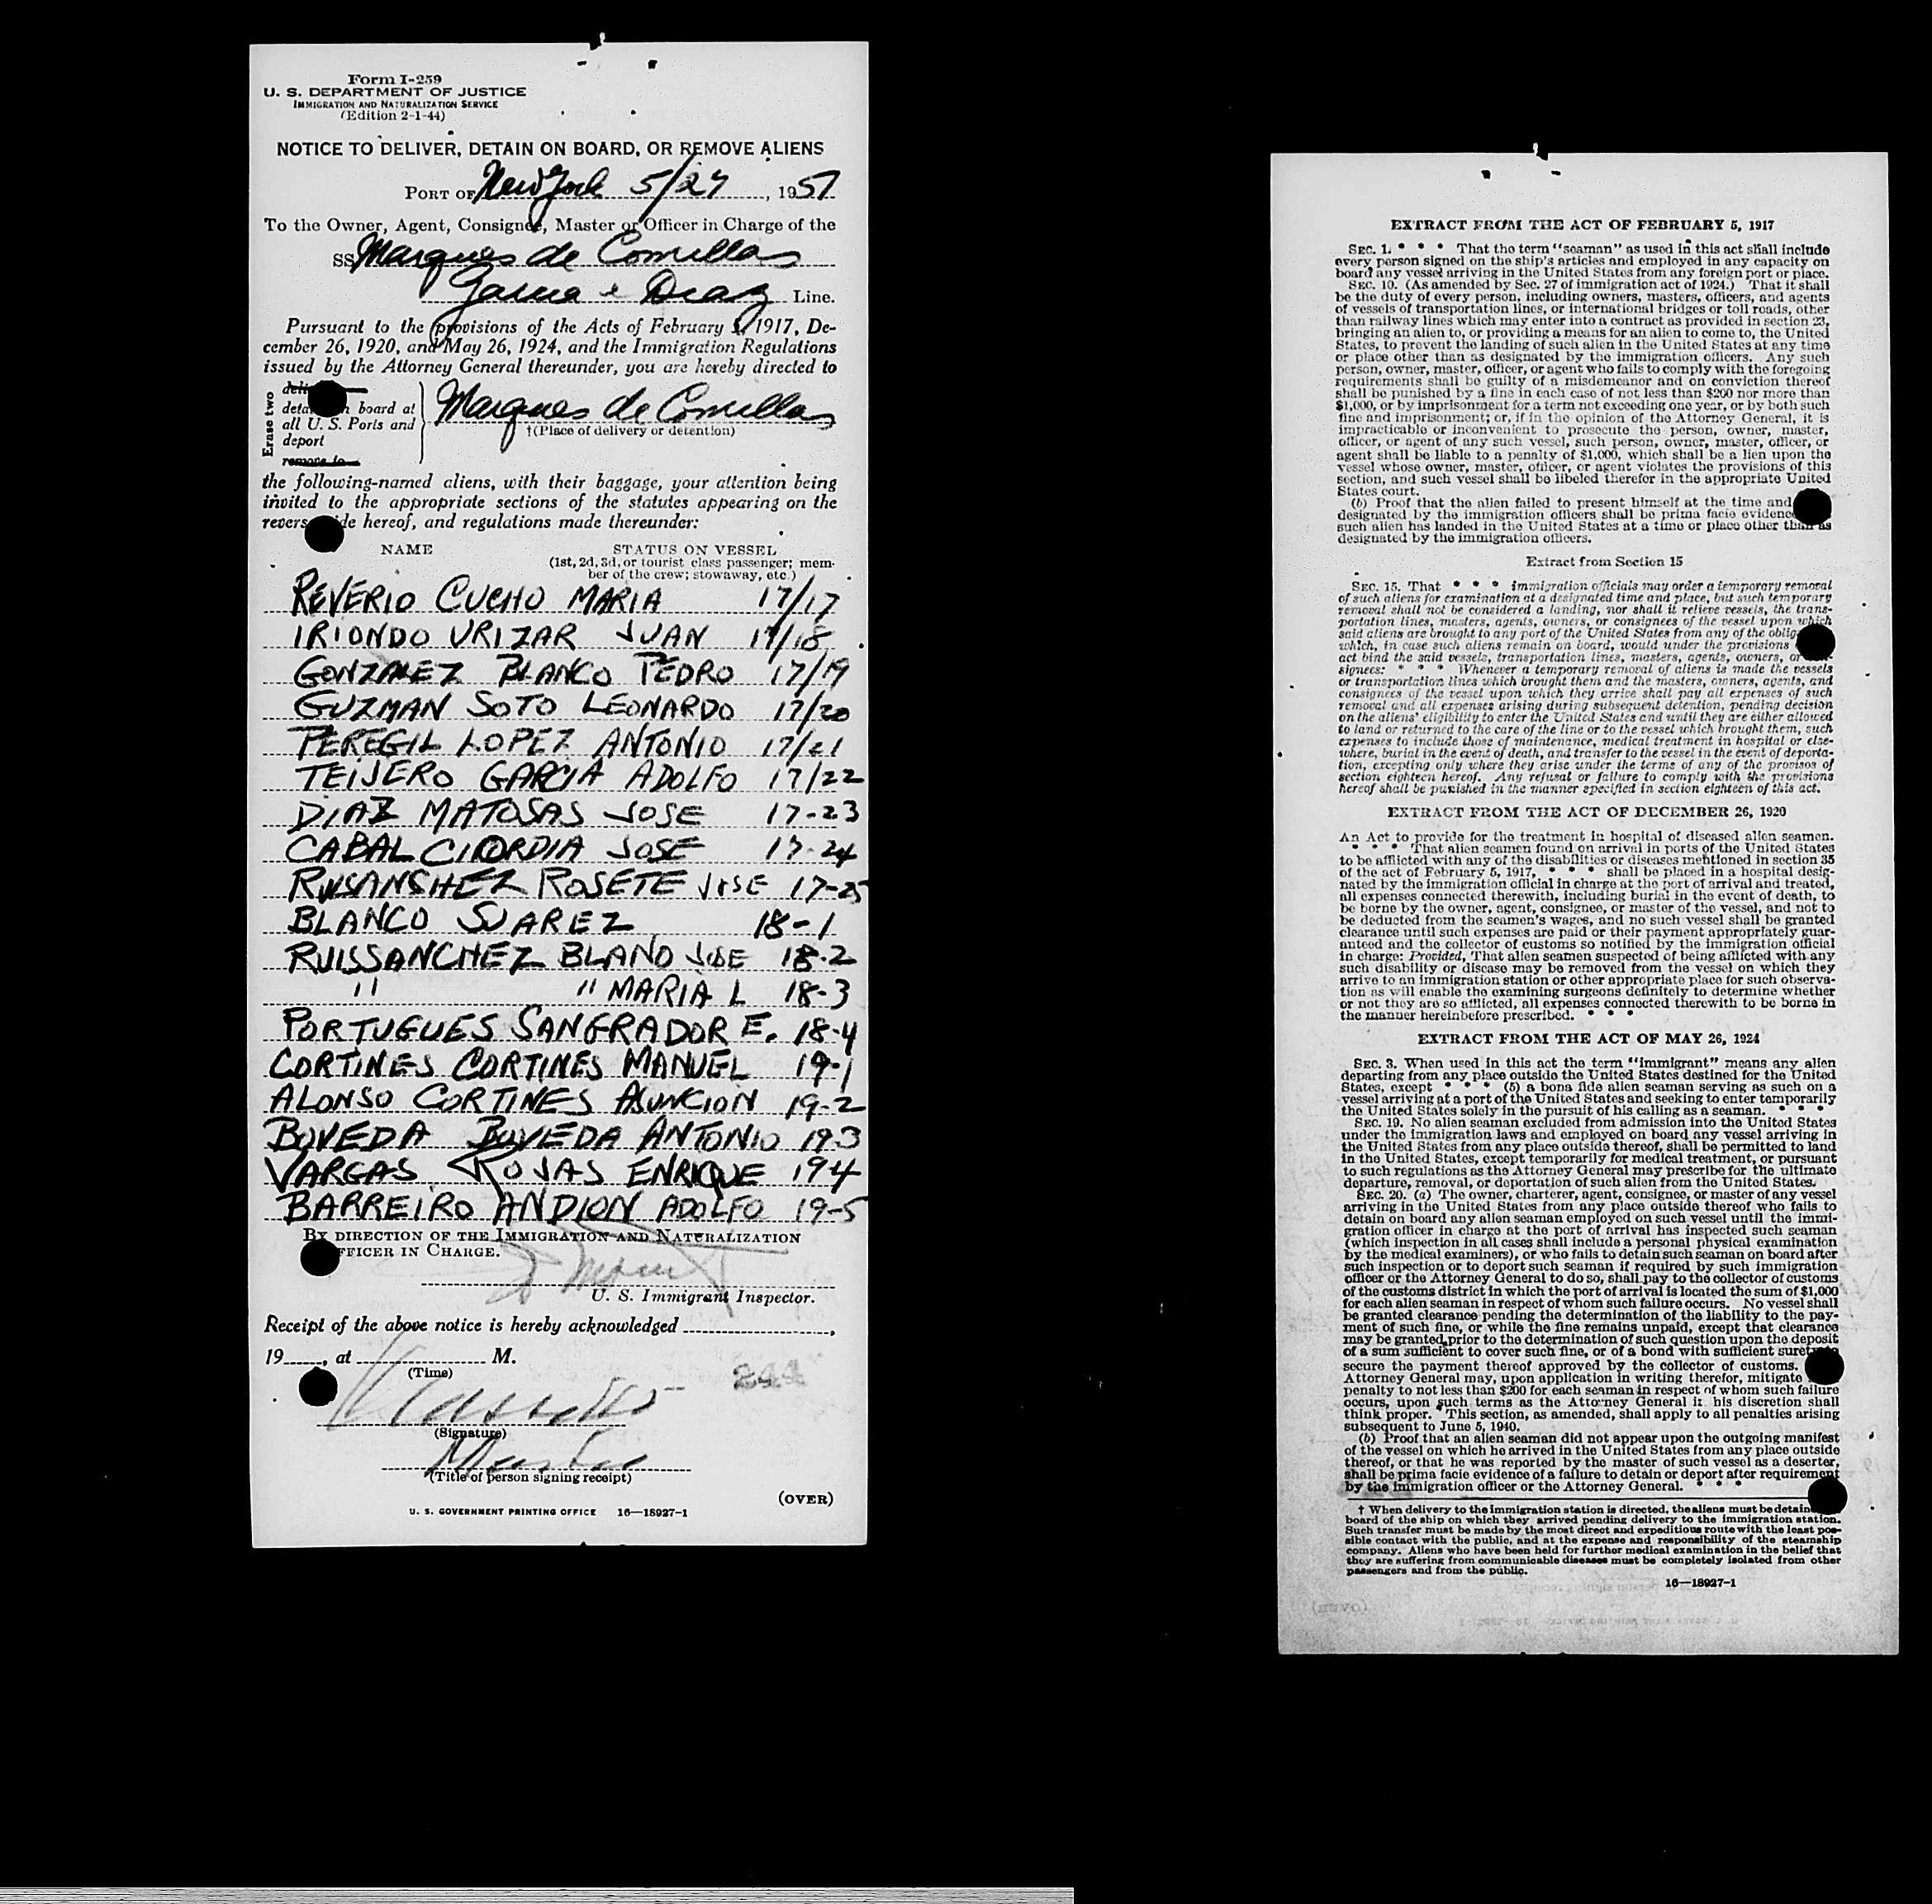 Form I-259
U. S. DEPARTMENT OF JUSTICE
IMMIGRATION AND NATURALIZATION SERVICE
(Edition 2-1-44)
NOTICE TO DELIVER, DETAIN ON BOARD, OR REMOVE ALIENS
PORT OF New York 5/27, 1951
To the Owner, Agent, Consignee, Master or Officer in Charge of the
SS Marques de Comillas
Garcia & Diaz Line.
Pursuant to the provisions of the Acts of February 5, 1917, De-
cember 26, 1920, and May 26, 1924, and the Immigration Regulations
issued by the Attorney General thereunder, you are hereby directed to
Erase two
board at
all U. S. Ports and
deport
remove to
Marques de Comillas
†(Place of delivery or detention)
the following-named aliens, with their baggage, your attention being
invited to the appropriate sections of the statutes appearing on the
revers de hereof, and regulations made thereunder:
NAME STATUS ON VESSEL
(1st, 2d, 3d, or tourist class passenger; mem-
ber of the crew; stowaway, etc.)
REVERIO CUCHO MARIA 17/17
IRIONDO URIZAR JUAN 17/18
GONZALEZ BLANCO PEDRO 17/19
GUZMAN SOTO LEONARDO 17/20
PEREGIL LOPEZ ANTONIO 17/21
TEIJERO GARCIA ADOLFO 17/22
DIAZ MATOSAS JOSE 17-23
CABAL CIORDIA JOSE 17-24
RUISANSHEZ ROSETE JOSE 17-25
BLANCO SUAREZ 18-1
RUISSANCHEZ BLANO JOSE 18-2
" " MARIA L 18-3
PORTUGUES SANGRADOR E. 18-4
CORTINES CORTINES MANUEL 19-1
ALONSO CORTINES ASUNCION 19-2
BOVEDA BOVEDA ANTONIO 19-3
VARGAS ROJAS ENRIQUE 19-4
BARREIRO ANDION ADOLFO 19-5
BY DIRECTION OF THE IMMIGRATION AND NATURALIZATION
FFICER IN CHARGE.
U. S. Immigrant Inspector.
Receipt of the above notice is hereby acknowledged
19 , at M.
(Time)
244
(Signature)
Master
(Title of person signing receipt)
(OVER)
U. S. GOVERNMENT PRINTING OFFICE 16—18927-1
EXTRACT FROM THE ACT OF FEBRUARY 5, 1917
SEC. 1. * * * That the term "seaman" as used in this act shall include
every person signed on the ship's articles and employed in any capacity on
board any vessel arriving in the United States from any foreign port or place.
SEC. 10. (As amended by Sec. 27 of immigration act of 1924.) That it shall
be the duty of every person, including owners, masters, officers, and agents
of vessels of transportation lines, or international bridges or toll roads, other
than railway lines which may enter into a contract as provided in section 23,
bringing an alien to, or providing a means for an alien to come to, the United
States, to prevent the landing of such alien in the United States at any time
or place other than as designated by the immigration officers. Any such
person, owner, master, officer, or agent who fails to comply with the foregoing
requirements shall be guilty of a misdemeanor and on conviction thereof
shall be punished by a fine in each case of not less than $200 nor more than
$1,000, or by imprisonment for a term not exceeding one year, or by both such
fine and imprisonment; or, if in the opinion of the Attorney General, it is
impracticable or inconvenient to prosecute the person, owner, master,
officer, or agent of any such vessel, such person, owner, master, officer, or
agent shall be liable to a penalty of $1,000, which shall be a lien upon the
vessel whose owner, master, officer, or agent violates the provisions of this
section, and such vessel shall be libeled therefor in the appropriate United
States court.
(b) Proof that the alien failed to present himself at the time and
designated by the immigration officers shall be prima facie evidence
such alien has landed in the United States at a time or place other than as
designated by the immigration officers.
Extract from Section 15
SEC. 15. That * * * immigration officials may order a temporary removal
of such aliens for examination at a designated time and place, but such temporary
removal shall not be considered a landing, nor shall it relieve vessels, the trans-
portation lines, masters, agents, owners, or consignees of the vessel upon which
said aliens are brought to any port of the United States from any of the oblig
which, in case such aliens remain on board, would under the provisions
act bind the said vessels, transportation lines, masters, agents, owners, or
signees: * * * Whenever a temporary removal of aliens is made the vessels
or transportation lines which brought them and the masters, owners, agents, and
consignees of the vessel upon which they arrive shall pay all expenses of such
removal and all expenses arising during subsequent detention, pending decision
on the aliens' eligibility to enter the United States and until they are either allowed
to land or returned to the care of the line or to the vessel which brought them, such
expenses to include those of maintenance, medical treatment in hospital or else-
where, burial in the event of death, and transfer to the vessel in the event of deporta-
tion, excepting only where they arise under the terms of any of the provisos of
section eighteen hereof. Any refusal or failure to comply with the provisions
hereof shall be punished in the manner specified in section eighteen of this act.
EXTRACT FROM THE ACT OF DECEMBER 26, 1920
An Act to provide for the treatment in hospital of diseased alien seamen.
* * * That alien seamen found on arrival in ports of the United States
to be afflicted with any of the disabilities or diseases mentioned in section 35
of the act of February 5, 1917, * * * shall be placed in a hospital desig-
nated by the immigration official in charge at the port of arrival and treated,
all expenses connected therewith, including burial in the event of death, to
be borne by the owner, agent, consignee, or master of the vessel, and not to
be deducted from the seamen's wages, and no such vessel shall be granted
clearance until such expenses are paid or their payment appropriately guar-
anteed and the collector of customs so notified by the immigration official
in charge: Provided, That alien seamen suspected of being afflicted with any
such disability or disease may be removed from the vessel on which they
arrive to an immigration station or other appropriate place for such observa-
tion as will enable the examining surgeons definitely to determine whether
or not they are so afflicted, all expenses connected therewith to be borne in
the manner hereinbefore prescribed. * * *
EXTRACT FROM THE ACT OF MAY 26, 1924
SEC. 3. When used in this act the term "immigrant" means any alien
departing from any place outside the United States destined for the United
States, except * * * (5) a bona fide alien seaman serving as such on a
vessel arriving at a port of the United States and seeking to enter temporarily
the United States solely in the pursuit of his calling as a seaman. * * *
SEC. 19. No alien seaman excluded from admission into the United States
under the immigration laws and employed on board any vessel arriving in
the United States from any place outside thereof, shall be permitted to land
in the United States, except temporarily for medical treatment, or pursuant
to such regulations as the Attorney General may prescribe for the ultimate
departure, removal, or deportation of such alien from the United States.
SEC. 20. (a) The owner, charterer, agent, consignee, or master of any vessel
arriving in the United States from any place outside thereof who fails to
detain on board any alien seaman employed on such vessel until the immi-
gration officer in charge at the port of arrival has inspected such seaman
(which inspection in all cases shall include a personal physical examination
by the medical examiners), or who fails to detain such seaman on board after
such inspection or to deport such seaman if required by such immigration
officer or the Attorney General to do so, shall pay to the collector of customs
of the customs district in which the port of arrival is located the sum of $1,000
for each alien seaman in respect of whom such failure occurs. No vessel shall
be granted clearance pending the determination of the liability to the pay-
ment of such fine, or while the fine remains unpaid, except that clearance
may be granted prior to the determination of such question upon the deposit
of a sum sufficient to cover such fine, or of a bond with sufficient surety to
secure the payment thereof approved by the collector of customs.
Attorney General may, upon application in writing therefor, mitigate
penalty to not less than $200 for each seaman in respect of whom such failure
occurs, upon such terms as the Attorney General in his discretion shall
think proper. This section, as amended, shall apply to all penalties arising
subsequent to June 5, 1940.
(b) Proof that an alien seaman did not appear upon the outgoing manifest
of the vessel on which he arrived in the United States from any place outside
thereof, or that he was reported by the master of such vessel as a deserter,
shall be prima facie evidence of a failure to detain or deport after requirement
by the immigration officer or the Attorney General. * * *
† When delivery to the immigration station is directed, the aliens must be detain
board of the ship on which they arrived pending delivery to the immigration station.
Such transfer must be made by the most direct and expeditious route with the least pos-
sible contact with the public, and at the expense and responsibility of the steamship
company. Aliens who have been held for further medical examination in the belief that
they are suffering from communicable diseases must be completely isolated from other
passengers and from the public.
16—18927-1